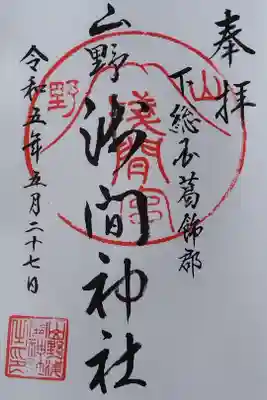 奉拝
下総国葛飾郡
山野浅間神社
令和五年五月二十七日
山野
浅間宮